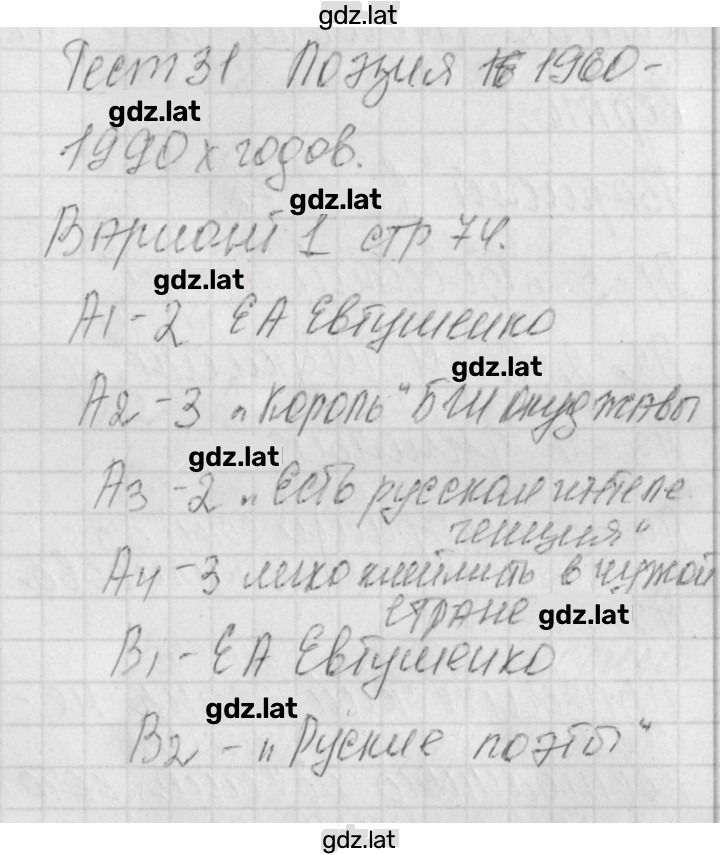 gdz.lat
Тест 31 Поэзия 1960-
gdz.lat
1990х годов.
gdz.lat
Вариант 1 стр 74.
gdz.lat
А1-2 ЕА Евтушенко
gdz.lat
А2-3 "Король" БШ Окуджавы
gdz.lat
А3-2 "Есть русская интеле
генция"
А4-3 легко клеймить в чужой
стране
gdz.lat
В1- ЕА Евтушенко
gdz.lat
В2 - "Руские поэты"
gdz.lat